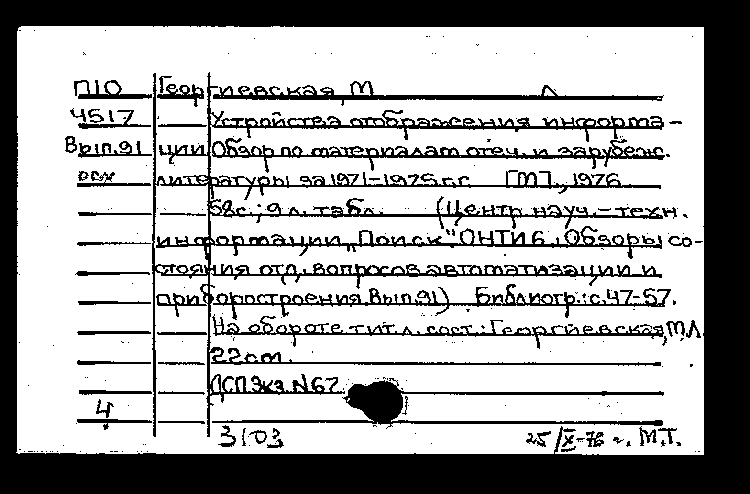 П10 Георгиевская, М Л
4517 Устройства отображения информа-
Вып.91 ции Обзор по материалам отеч. и зарубеж.
литературы за 1971-1975 г.г. [М]., 1976
58с.; 9 л. табл. (Центр науч.-техн.
информации „Поиск" ОНТИ 6. Обзоры со-
стояния отд. вопросов автоматизации и
приборостроения. Вып.91) Библиогр.: с.47-57.
На обороте тит. л. сост.: Георгиевская, М.Л.
22 см.
ДСП Экз. N67
4
3103 25/IX-76 г. М.Т.